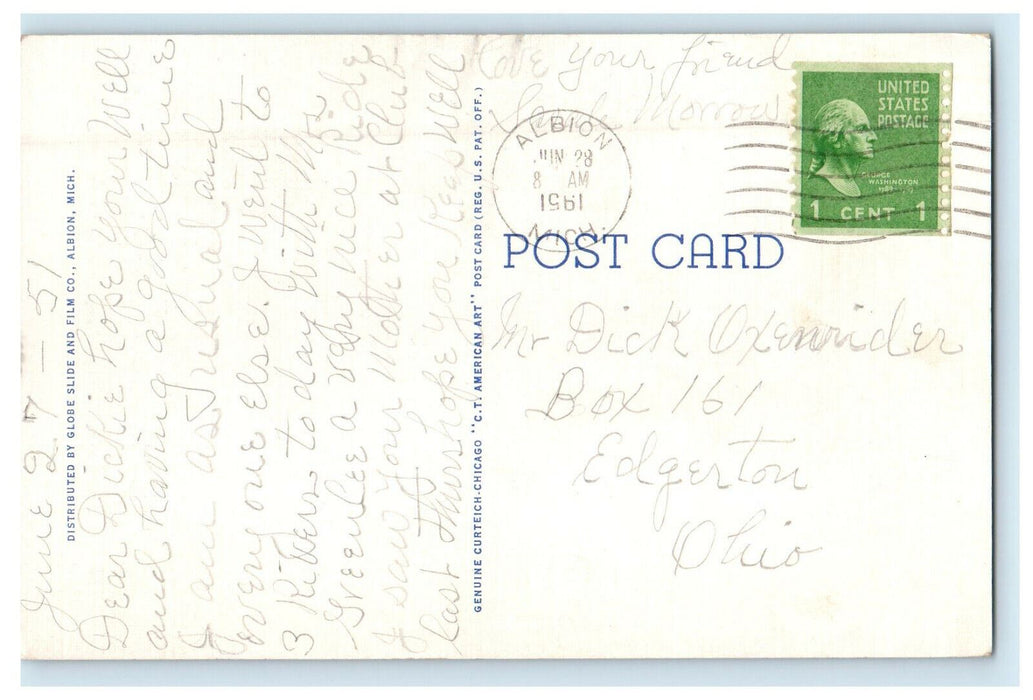 June 27 - 51
DISTRIBUTED BY GLOBE SLIDE AND FILM CO., ALBION, MICH.
Dear Dickie hope your Well
and having a good time
I am as Jusual and
every one else. I went to
3 Rivers to day With Ms
Greenlee a very nice Ride
I saw your Mother at Club
last thurs hope you Keep Well
Love your friend
Morrow
GENUINE CURTEICH-CHICAGO "C.T. AMERICAN ART" POST CARD (REG. U.S. PAT. OFF.)
ALBION
JUN 28
8 AM
1951
MICH.
UNITED
STATES
POSTAGE
GEORGE
WASHINGTON
1 CENT 1
POST CARD
Mr Dick Oxenrider
Box 161
Edgerton
Ohio